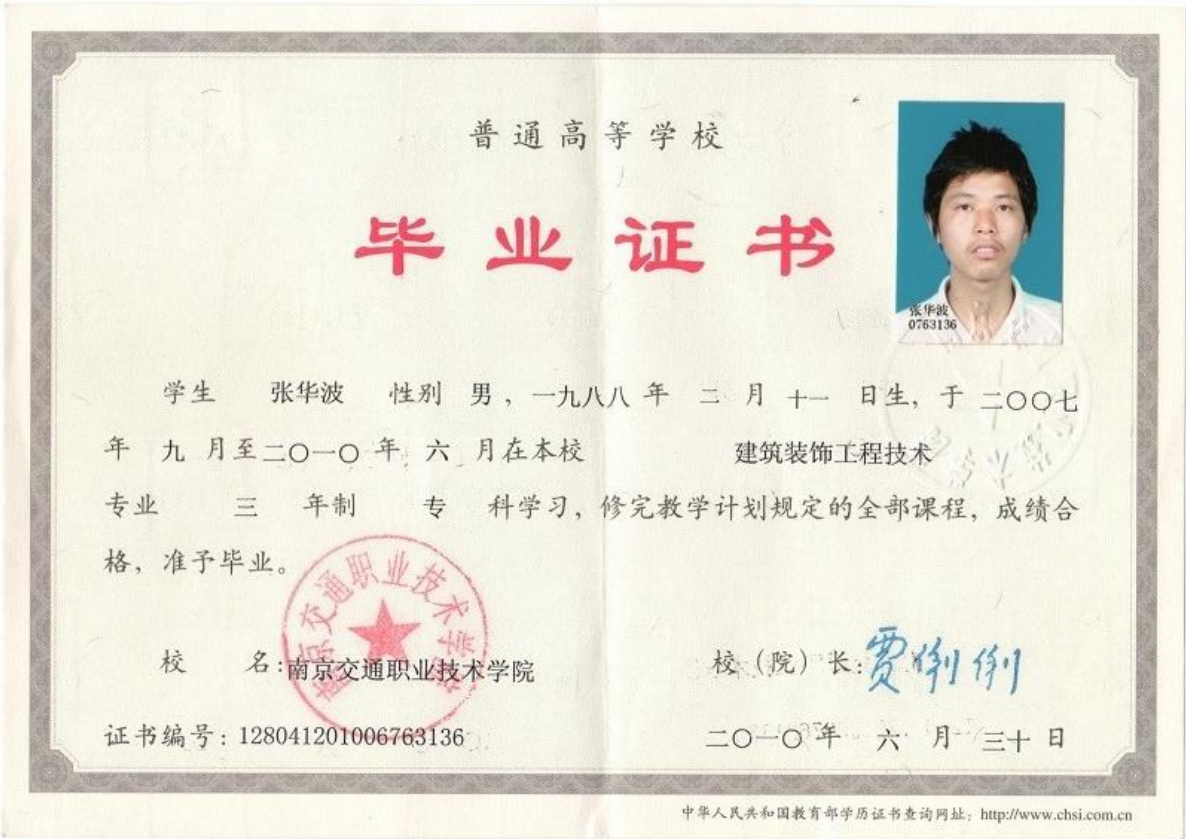 普通高等学校
毕业证书
张华波
0763136
学生 张华波 性别 男，一九八八 年 二 月 十一 日生，于 二〇〇七
年 九 月至二〇一〇 年 六 月在本校 建筑装饰工程技术
专业 三 年制 专 科学习，修完教学计划规定的全部课程，成绩合
格，准予毕业。
南京交通职业技术学院
校 名：南京交通职业技术学院
校（院）长：贾俐俐
证书编号：128041201006763136
二〇一〇 年 六 月 三十 日
中华人民共和国教育部学历证书查询网址：http://www.chsi.com.cn